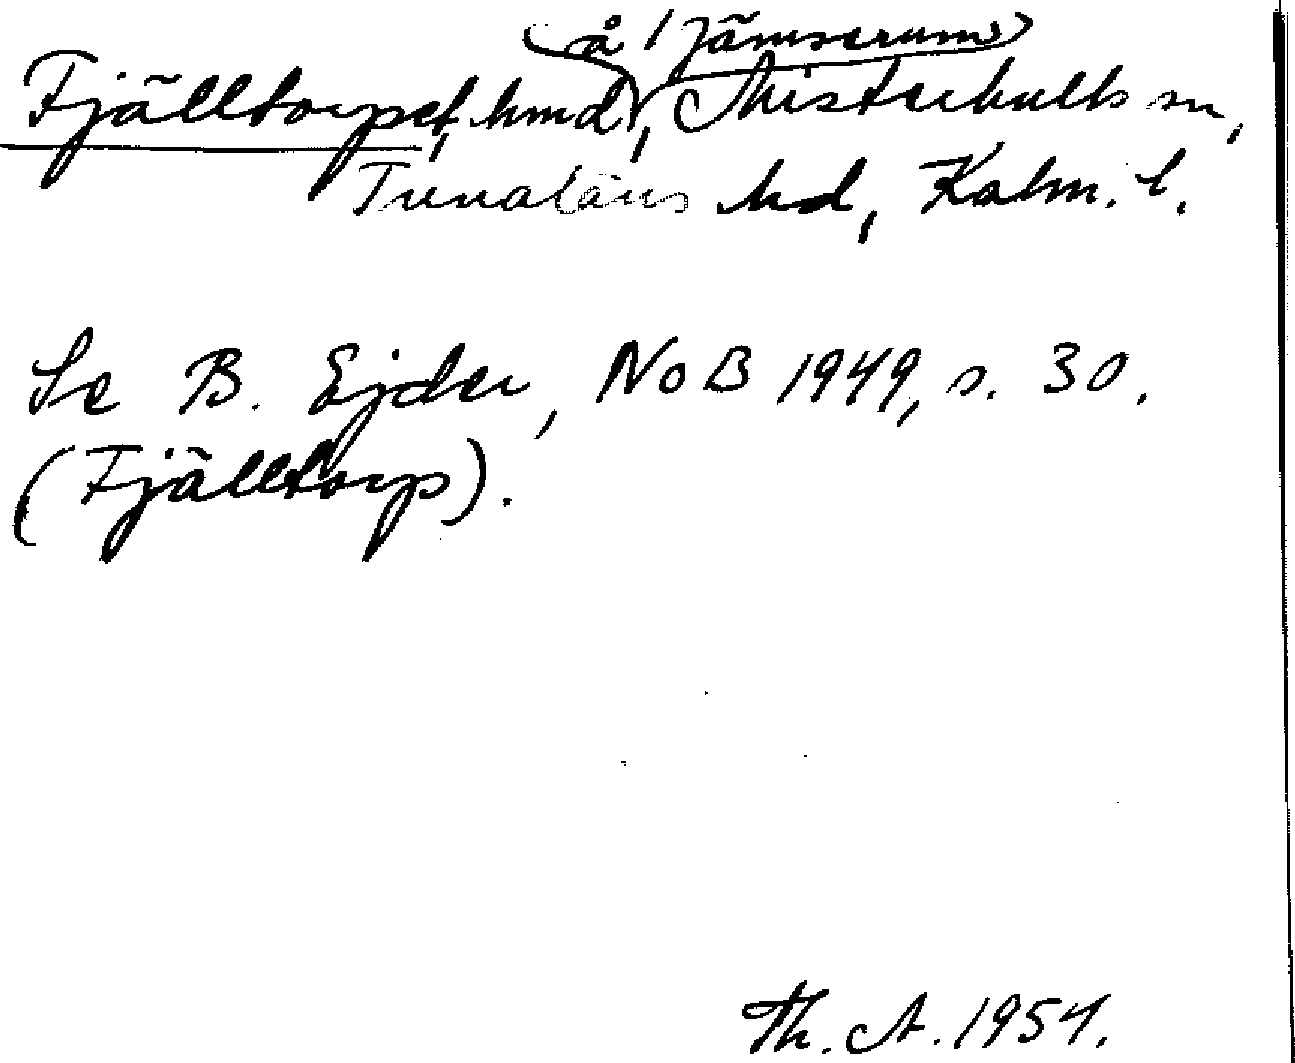 å 1 Jämserum
Fjälltorpet, hmd, Misterhults sn,
Tunaläns hd, Kalm. l.
Se B. Ejder, NoB 1949, s. 30.
(Fjälltorp).
Th. A. 1954.